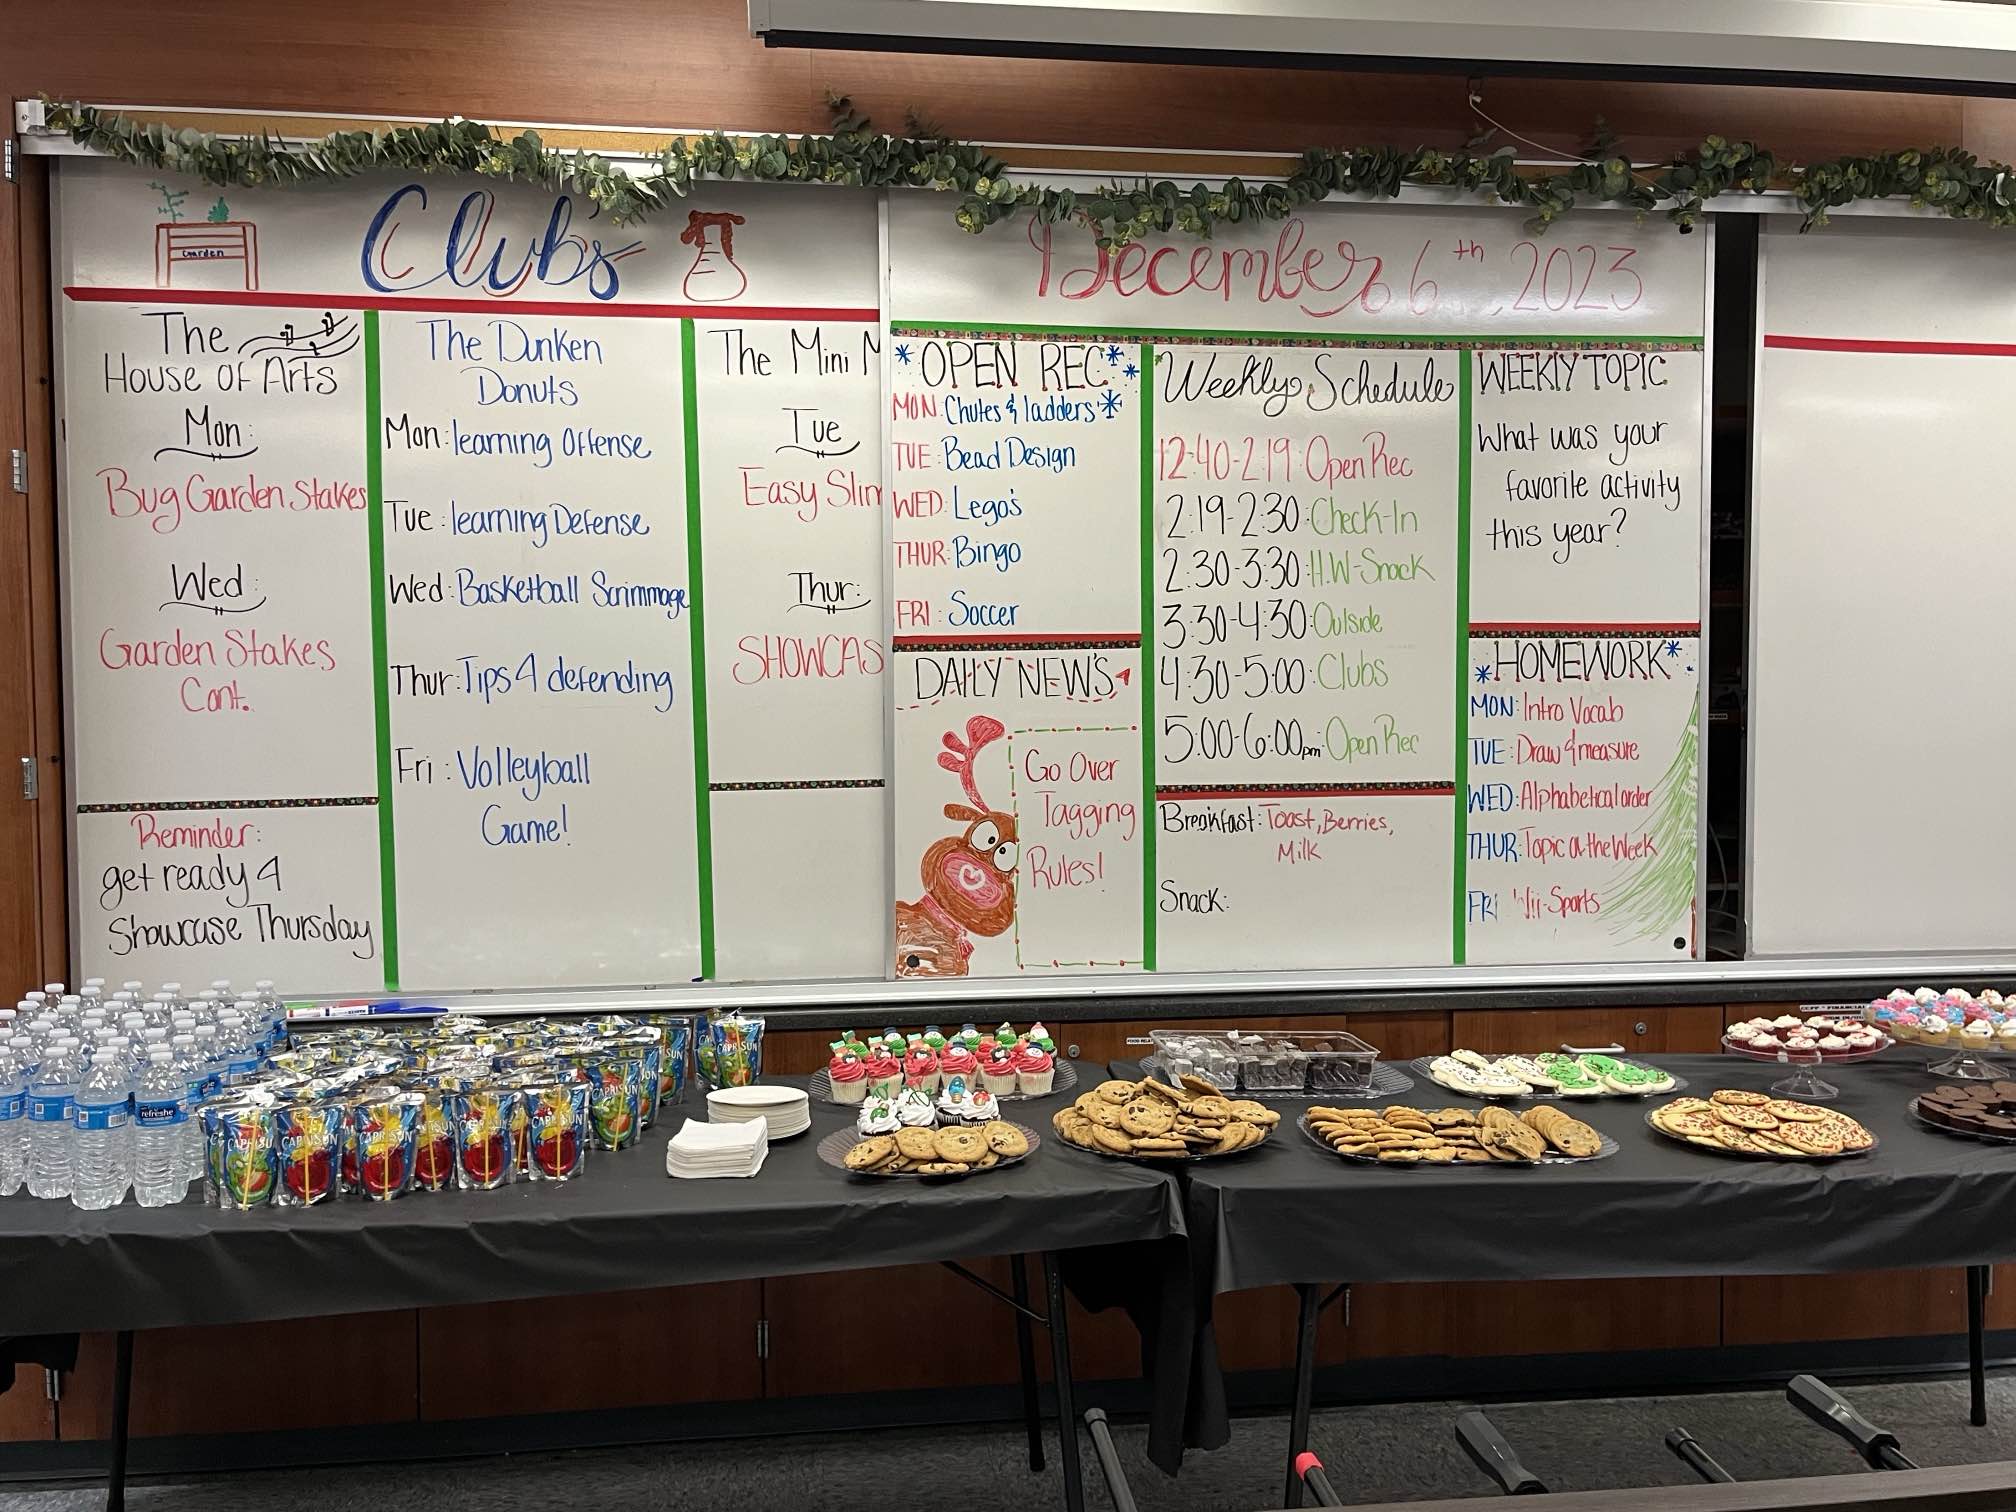 Clubs
Garden
The
House of Arts
Mon:
Bug Garden Stakes
Wed:
Garden Stakes
Cont.
Reminder:
get ready 4
Showcase Thursday
The Dunken
Donuts
Mon: learning Offense
Tue: learning Defense
Wed: Basketball Scrimmage
Thur: Tips 4 defending
Fri: Volleyball
Game!
The Mini M
Tue
Easy Slim
Thur:
SHOWCAS
December 6th, 2023
OPEN REC
MON: Chutes & ladders
TUE: Bead Design
WED: Lego's
THUR: Bingo
FRI: Soccer
DAILY NEW'S
Go Over
Tagging
Rules!
Weekly Schedule
12:40-2:19: Open Rec
2:19-2:30: Check-In
2:30-3:30: H.W-Snack
3:30-4:30: Outside
4:30-5:00: Clubs
5:00-6:00pm: Open Rec
Breakfast: Toast, Berries,
Milk
Snack:
WEEKLY TOPIC
What was your
favorite activity
this year?
HOMEWORK
MON: Intro Vocab
TUE: Draw & measure
WED: Alphabetical order
THUR: Topic o the Week
FRI Wii-Sports
refreshe
CAPRI SUN
CAPRI SUN
CAPRI SUN
CAPRI SUN
CAPRI SUN